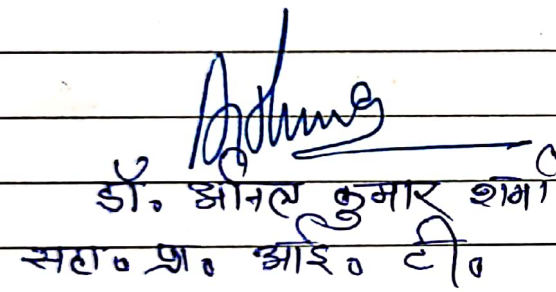 डॉ. अनिल कुमार शर्मा
सहा. प्रा. आई. टी.